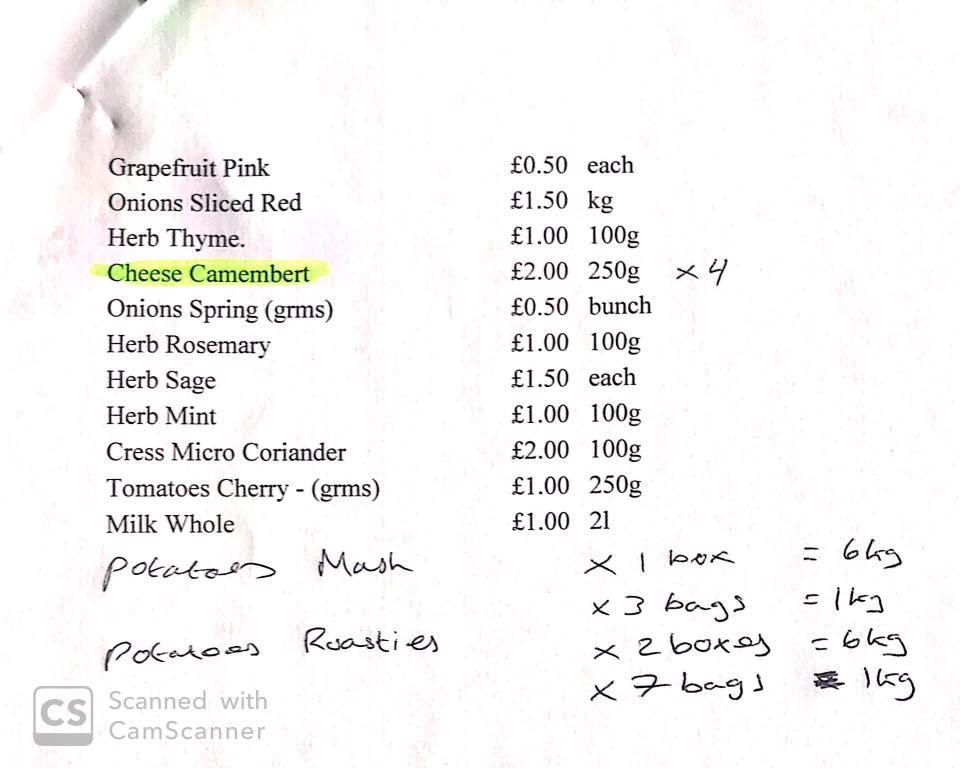 Grapefruit Pink £0.50 each
Onions Sliced Red £1.50 kg
Herb Thyme. £1.00 100g
Cheese Camembert £2.00 250g x 4
Onions Spring (grms) £0.50 bunch
Herb Rosemary £1.00 100g
Herb Sage £1.50 each
Herb Mint £1.00 100g
Cress Micro Coriander £2.00 100g
Tomatoes Cherry - (grms) £1.00 250g
Milk Whole £1.00 2l
Potatoes Mash x 1 box = 6kg
x 3 bags = 1kg
Potatoes Roasties x 2 boxes = 6kg
x 7 bags = 1kg
CS Scanned with
CamScanner